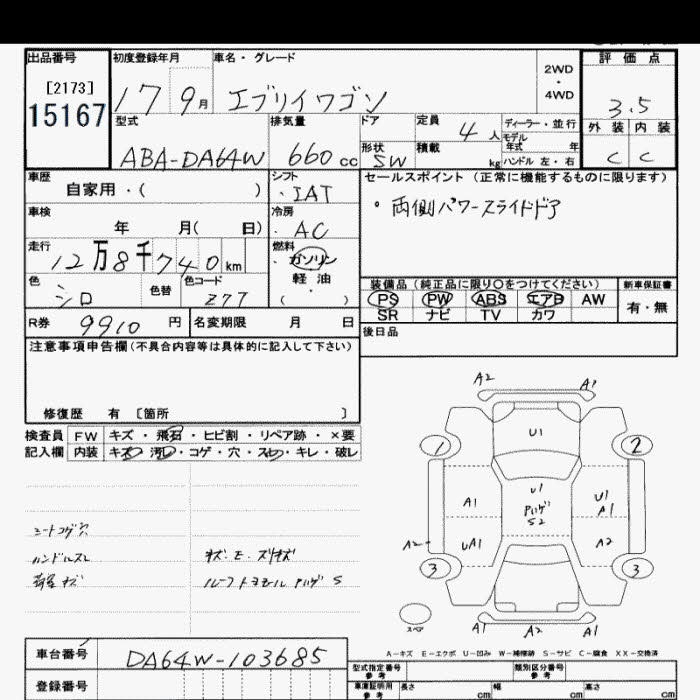 出品番号 初度登録年月 車名・グレード 2WD・4WD 評価点
[2173]
15167
17 9月 エブリイワゴン 3.5
型式 排気量 ドア 定員 4人 ディーラー・並行 外装 内装
モデル年式 年
ABA-DA64W 660cc 形状 SW 積載 kg ハンドル 左・右 C C
車歴 自家用・( ) シフト ・IAT セールスポイント(正常に機能するものに限ります)
車検 年 月( 日) 冷房 ・AC ・両側パワースライドドア
走行 12万8千740km 燃料 ・ガソリン
軽油
・( )
色 シロ 色替 色コード Z77 装備品(純正品に限り○をつけてください) 新車保証書
PS PW ABS エアB AW 有・無
SR ナビ TV カワ
R券 9910円 名変期限 月 日 後日品
注意事項申告欄(不具合内容等は具体的に記入して下さい)
修復歴 有 〔箇所 〕
検査員 FW キズ・飛石・ヒビ割・リペア跡・×要
記入欄 内装 キズ・汚レ・コゲ・穴・スレ・キレ・破レ
A2 A1
U1
1 2
A1 U1 U1
A1
S2
A2 UA1 A2
3 3
シートコゲ穴
ハンドルスレ
荷室キズ
スペア A1 A2 A1
A-キズ E-エクボ U-凹み W-補修跡 S-サビ C-腐食 XX-交換済
車台番号 DA64W-103685 型式指定番号 参考 類別区分番号 参考
登録番号 車庫証明用 参考 長さ cm 幅 cm 高さ cm